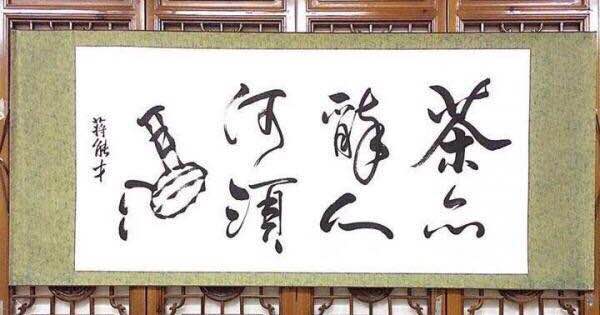 茶亦
醉人
何须
酒
蒋能才